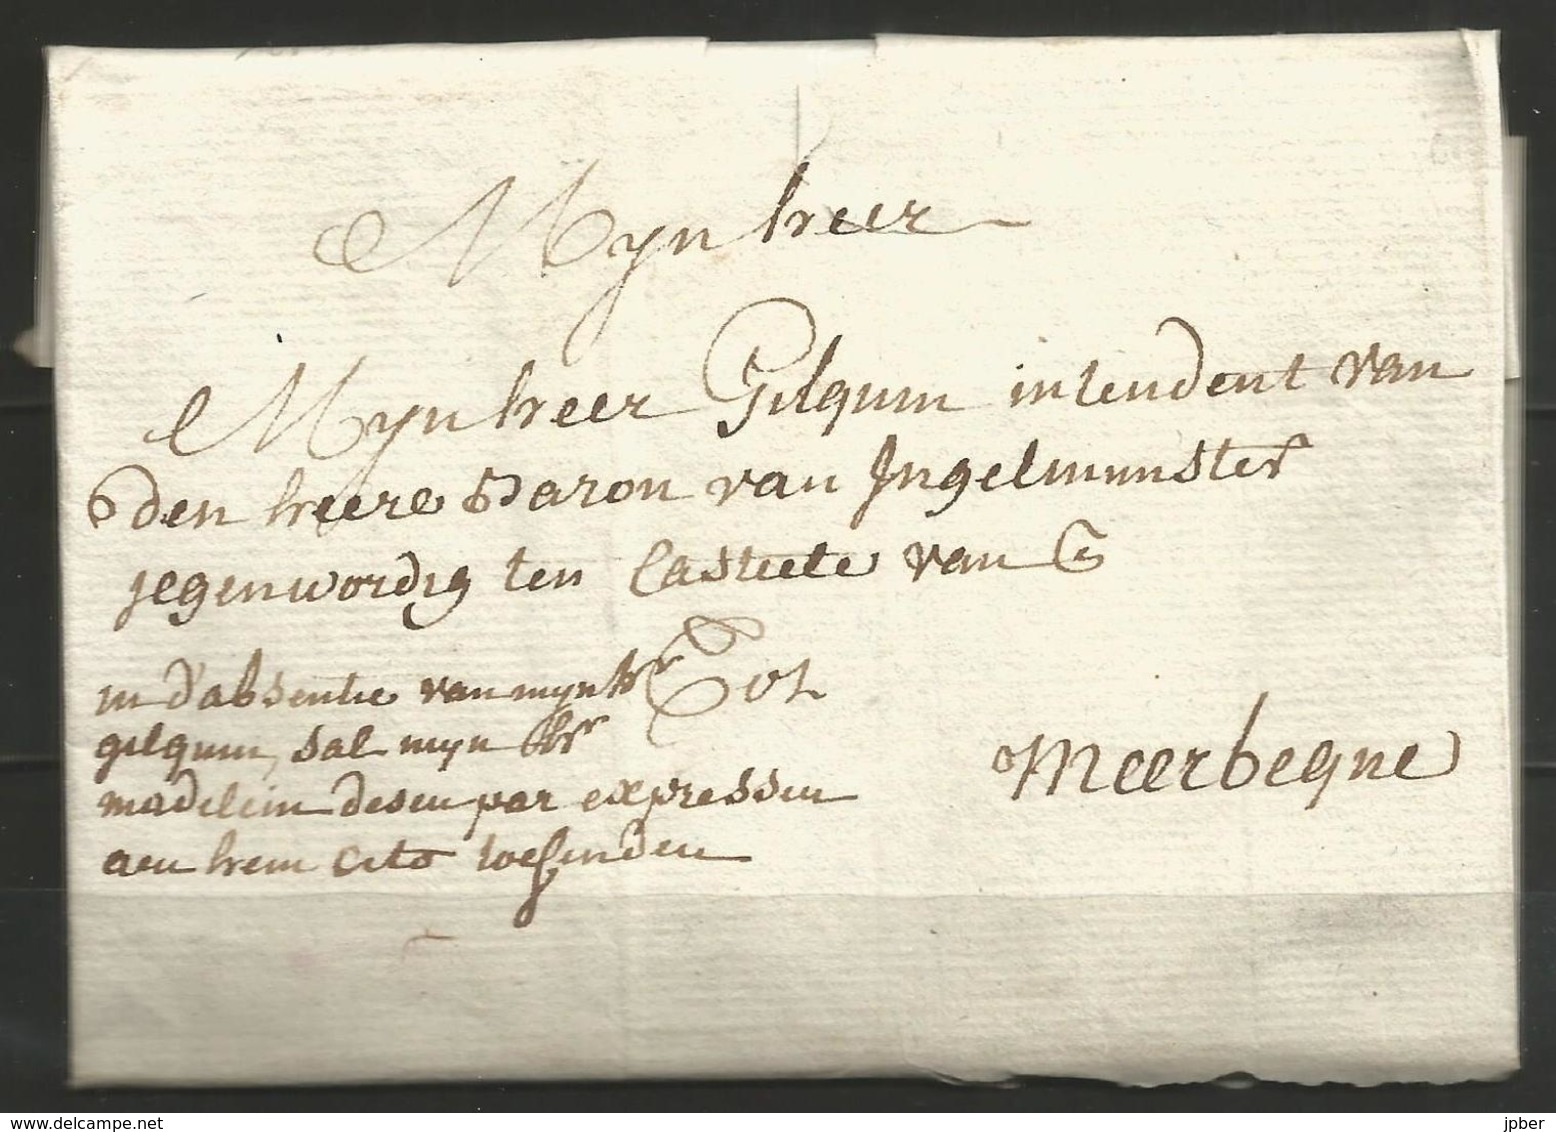 Mynheer
Mynheer Gilquin intendent van
den heere Baron van Ingelmunster
jegenwordig ten Casteele van
in d'absentie van mynhr Tot
gilquin, sal myn hr
Meerbeque
madelein desen par expressen
aen hem cito toesenden
www.delcampe.net
jpber